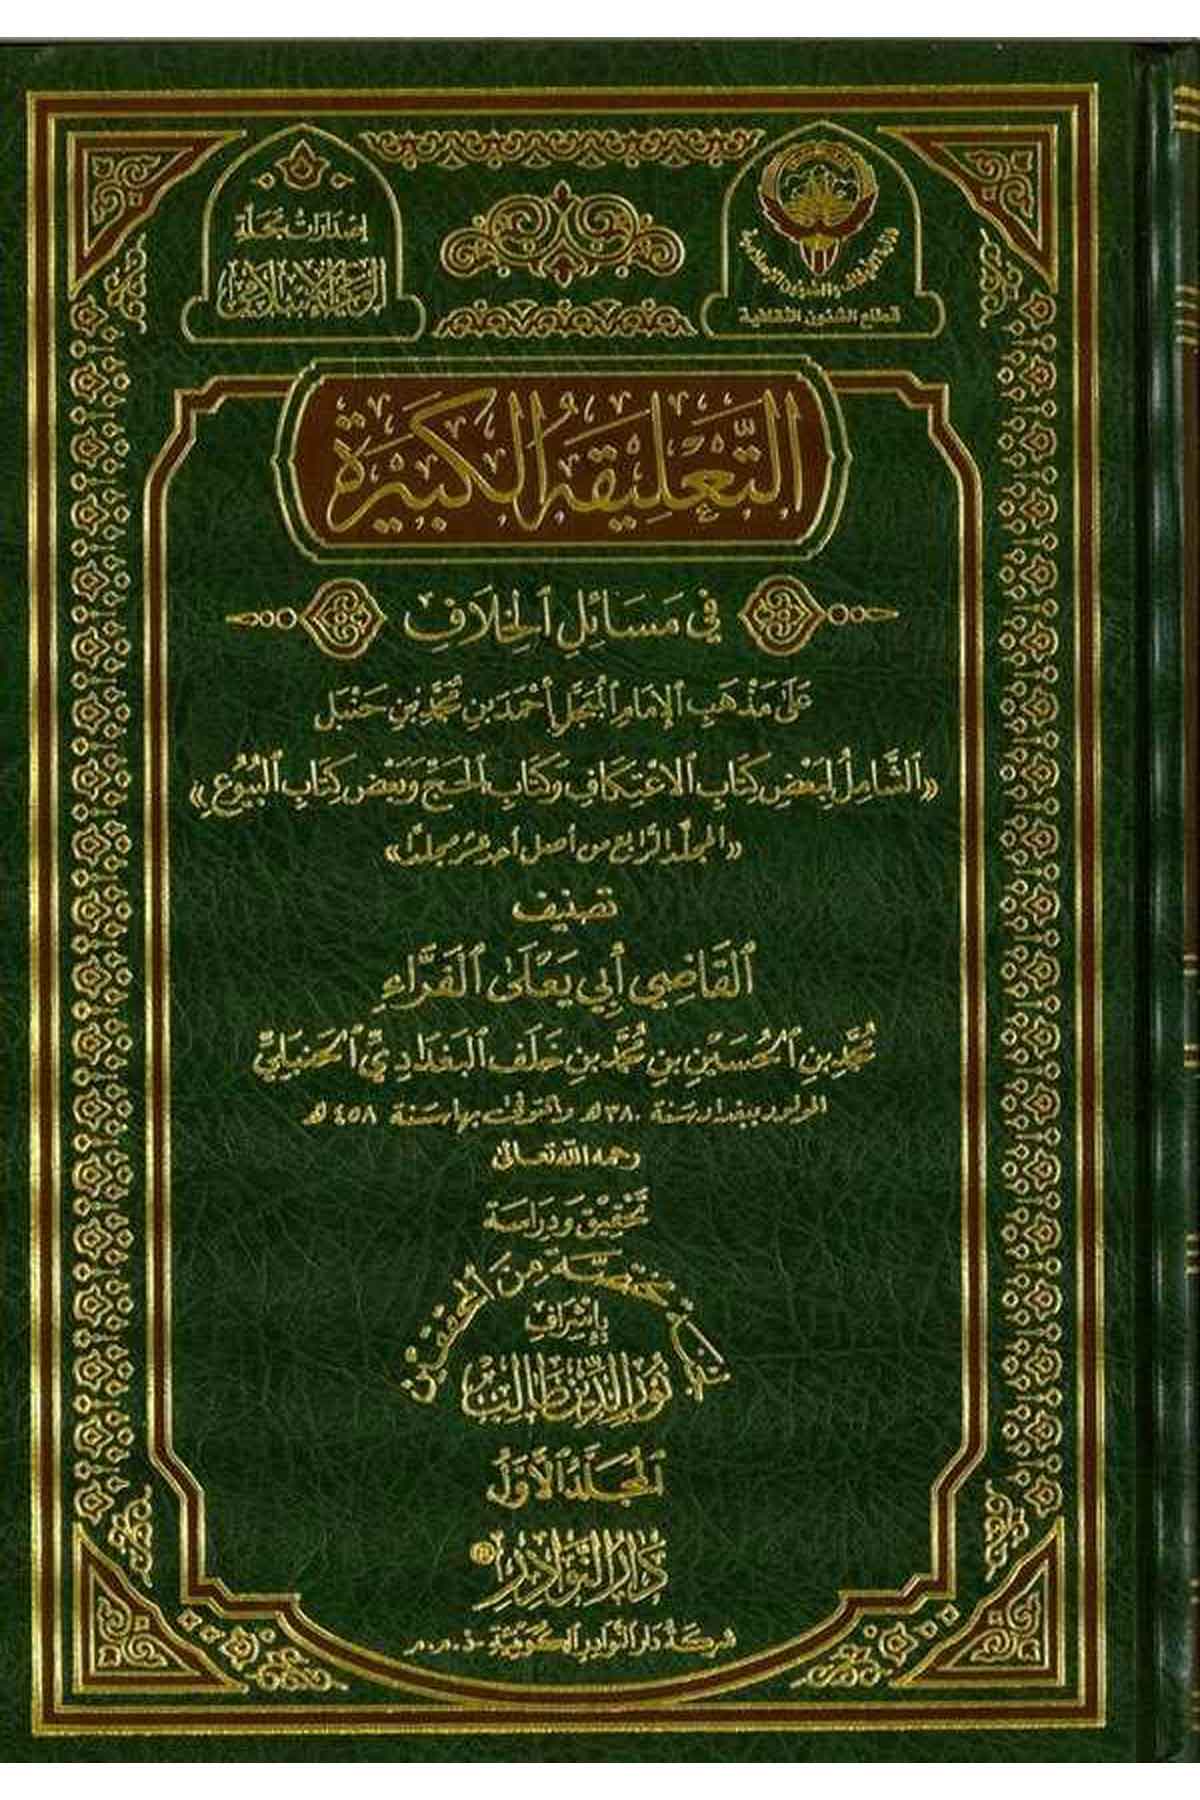 وزارة الأوقاف والشؤون الإسلامية
قطاع الشئون الثقافية
إصدارات مجلة
الوعي الإسلامي
التَّعْلِيقَةُ الكَبِيرَة
فِي مَسَائِلِ الخِلَافِ
عَلَى مَذْهَبِ الإِمَامِ المُبَجَّلِ أَحْمَدَ بْنِ مُحَمَّدِ بْنِ حَنْبَل
«الشَّامِلُ لِبَعْضِ كِتَابِ الاعْتِكَافِ وَكِتَابِ الحَجِّ وَبَعْضِ كِتَابِ البُيُوعِ»
«المجلد الرابع من أصل أحد عشر مجلدًا»
تصنيف
القَاضِي أَبِي يَعْلَى الفَرَّاءِ
مُحَمَّدِ بْنِ الحُسَيْنِ بْنِ مُحَمَّدِ بْنِ خَلَف البَغْدَادِيِّ الحَنْبَلِيِّ
المولود ببغداد سنة ٣٨٠هـ والمتوفى بها سنة ٤٥٨هـ
رحمه الله تعالى
تَحْقِيق وَدِرَاسَة
لجنة مختصة من المحققين
بإِشْرَافِ
نُورُ الدِّين طَالِب
المُجَلَّدُ الأَوَّلُ
دَارُ النَّوَادِرِ ®
شركة دار النوادر الكويتية ذ.م.م